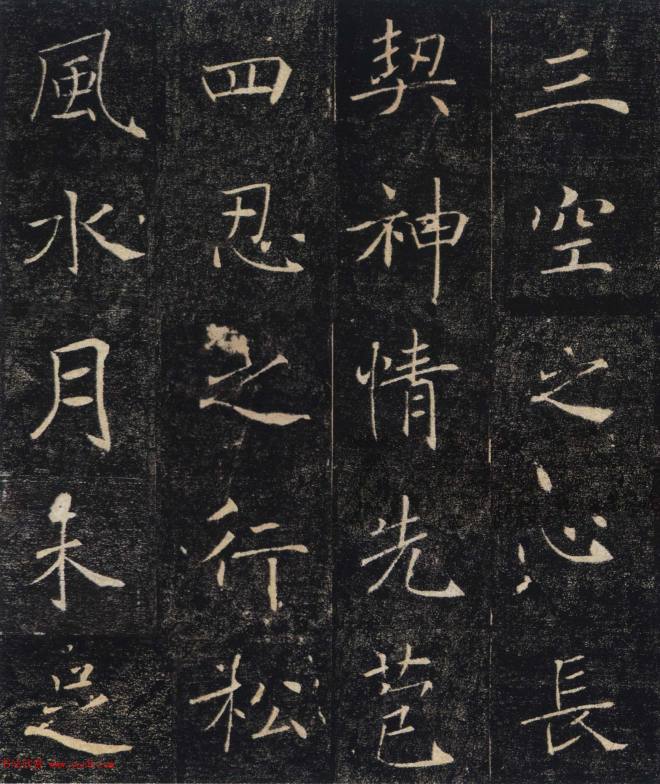 三空之心長
契神情先苞
四忍之行松
風水月未足